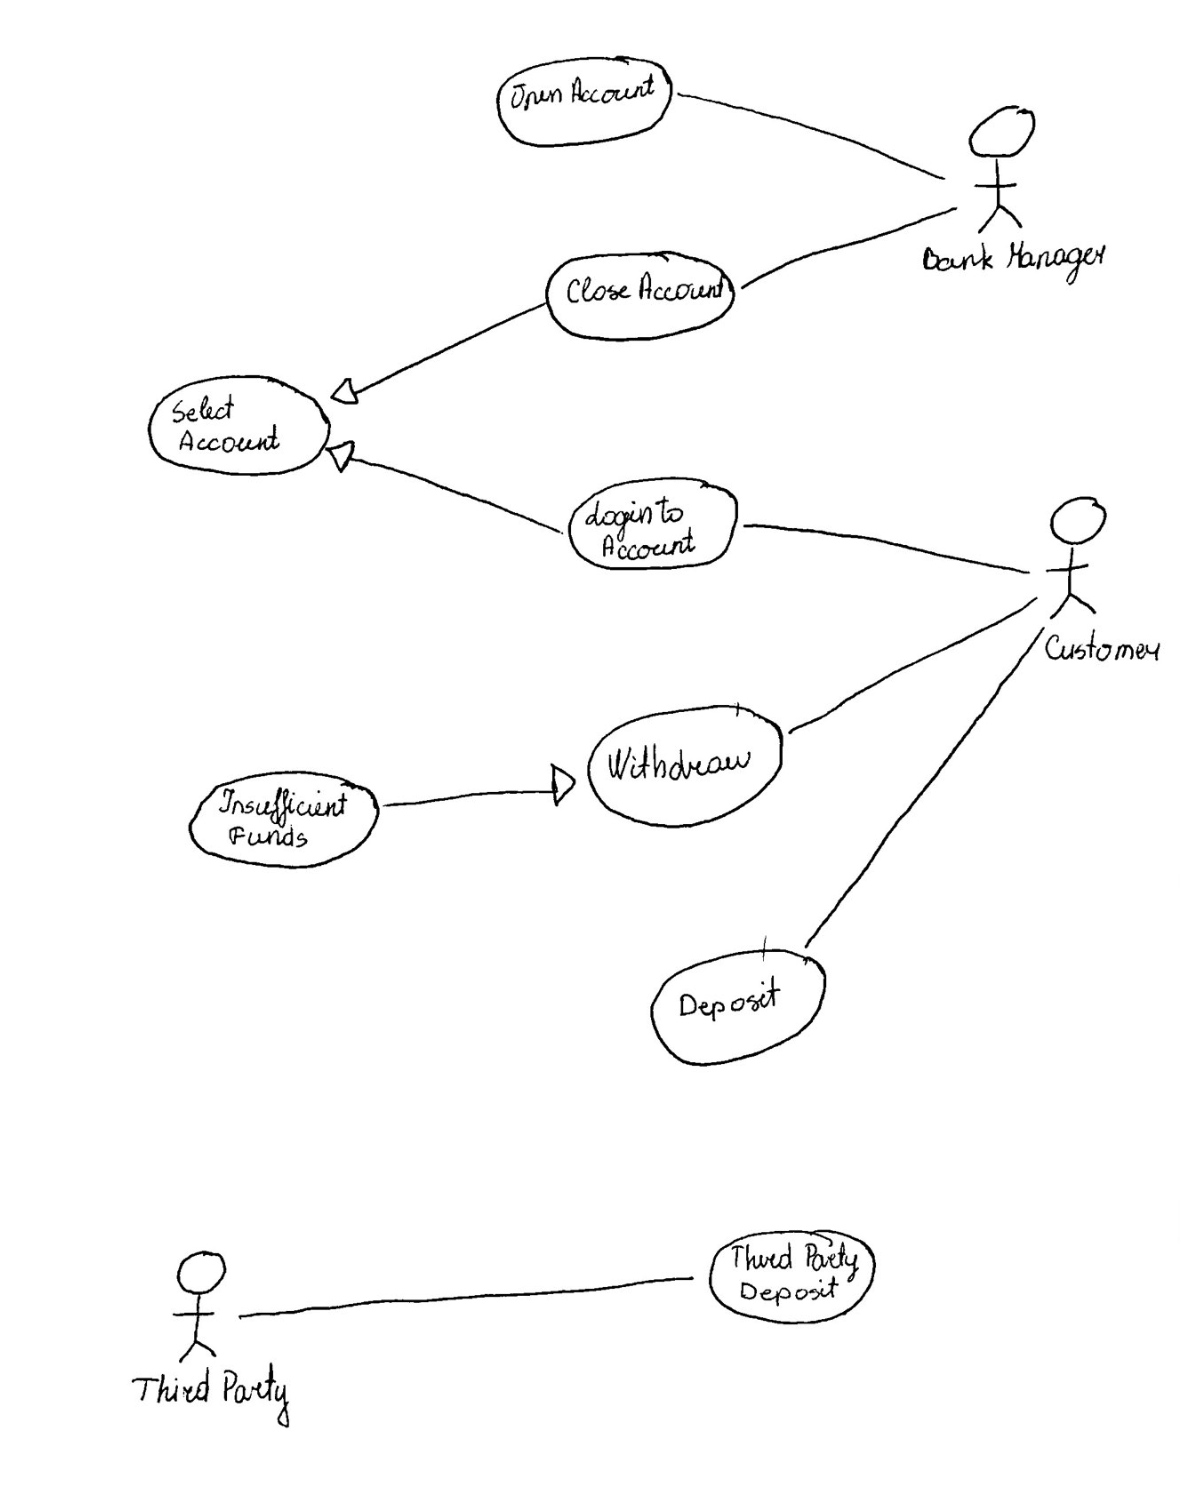 Open Account
Bank Manager
Close Account
Select
Account
Login to
Account
Customer
Withdraw
Insufficient
Funds
Deposit
Third Party
Deposit
Third Party